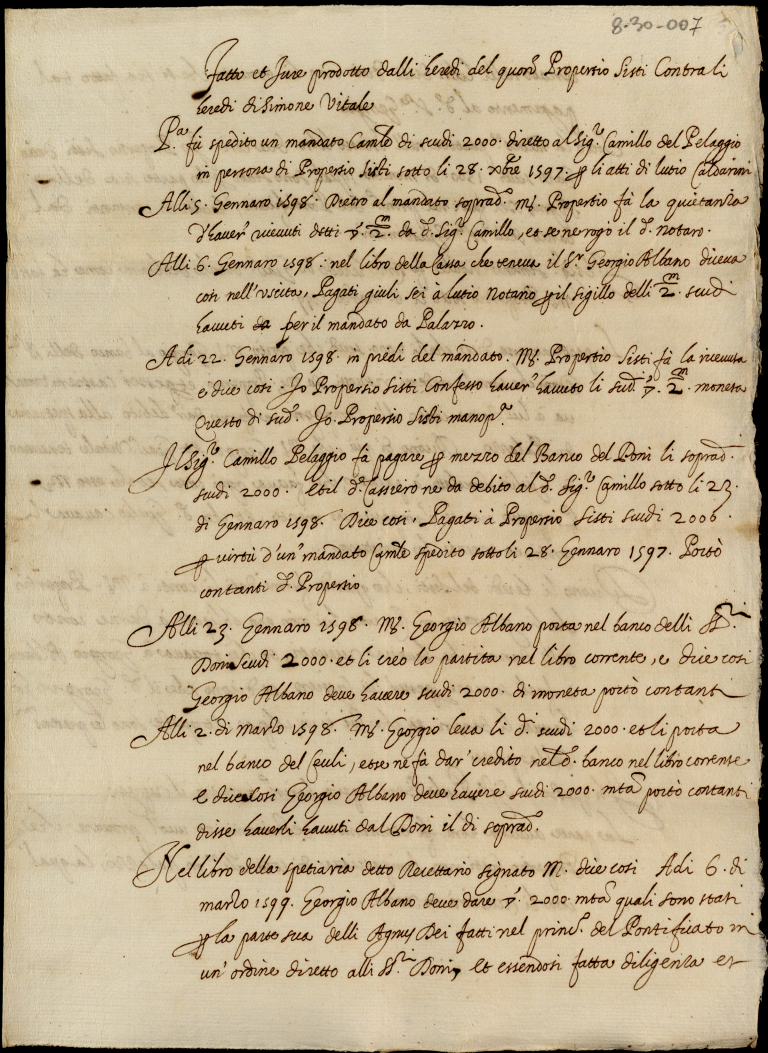 8-30-007
Fatto et Jure prodotto dalli heredi del quonđ Propertio Sisti Contra li
heredi di Simone Vitale
P.ª fù spedito un mandato Cam.le di scudi 2000. diretto al Sig.r Camillo del Pelaggio
in persona di Propertio Sisti sotto li 28. xbre 1597. ꝑ li atti di lutio Caldarini
Alli 5. Gennaro 1598. Dietro al mandato soprad. Ms. Propertio fà la quietanza
d'haver' ricevuti detti ▽. 2/m. da d. Sig.r Camillo, et se ne rogo il d. notaro.
Alli 6. Gennaro 1598: nel libro della Cassa che teneva il S.r Georgio Albano diceva
così nell'uscita, Pagati giuli sei à lutio Notario ꝑ il sigillo delli 2/m. scudi
havuti per il mandato da Palazzo.
A di 22. Gennaro 1598. in piedi del mandato. Ms. Propertio Sisti fà la ricevuta
e dice così. Jo Propertio Sisti Confesso haver' havuto li sud. ▽. 2/m. moneta
Questo di sud. Jo. Propertio Sisti mano pp.
Il Sig.r Camillo Pelaggio fà pagare ꝑ mezzo del Banco del Doni li soprad.
scudi 2000. et il d. Cassiero ne da debito al d. Sig.r Camillo sotto li 23.
di Gennaro 1598. Dice così, Pagati à Propertio Sisti scudi 2000.
ꝑ virtù d'un' mandato Cam.le spedito sotto li 28. Gennaro 1597. Portò
contanti d. Propertio
Alli 23. Gennaro 1598. Ms. Georgio Albano porta nel banco delli SS.ri
Doni scudi 2000. et li creò la partita nel libro corrente, e dice così
Georgio Albano deve havere scudi 2000. di moneta portò contanti
Alli 2. di marzo 1598. Ms. Georgio leva li d. scudi 2000. et li porta
nel banco del Ceuli, et se ne fà dar' credito nel d. banco nel libro corrente
e dice così Georgio Albano deve havere scudi 2000. mta portò contanti
disse haverli havuti dal Doni il di soprad.
Nel libro della spetiaria detto Recettario signato M. dice così Adi 6. di
marzo 1599. Georgio Albano deve dare ▽. 2000. mta quali sono stati
ꝑ la parte sua delli Agnus Dei fatti nel princ. del Pontificato in
un' ordine diretto alli SS.ri Doni, et essendosi fatta diligenza et